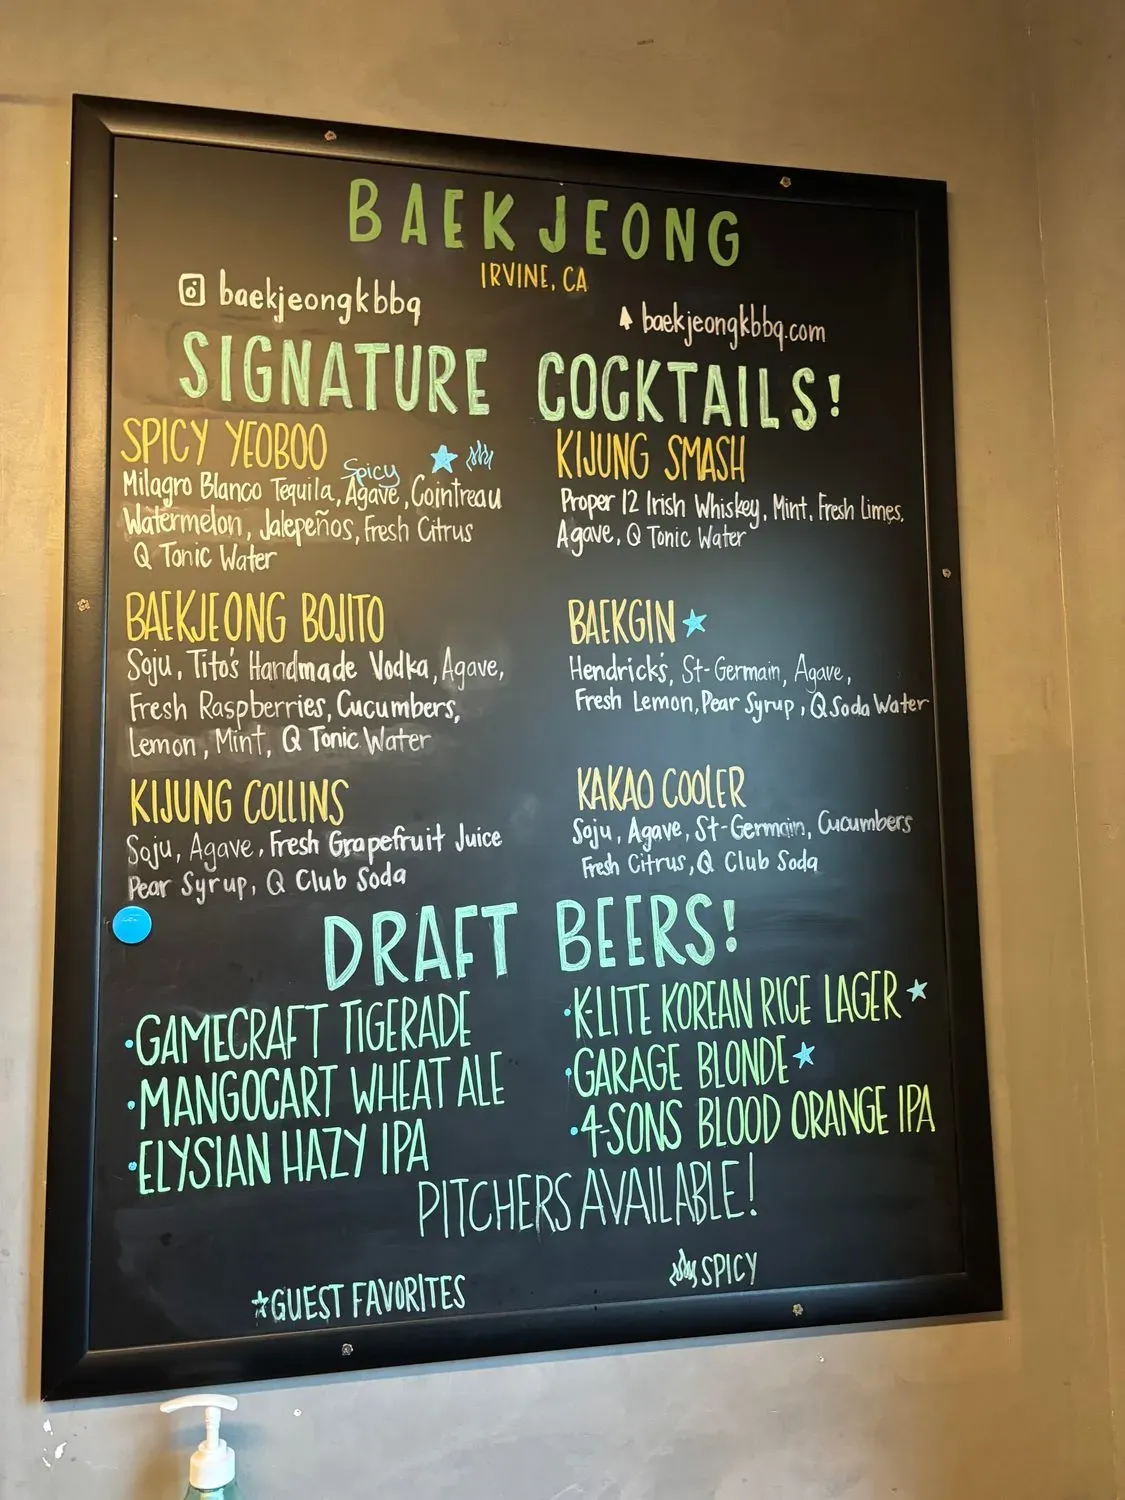 BAEKJEONG
IRVINE, CA
baekjeongkbbq
baekjeongkbbq.com
SIGNATURE COCKTAILS!
SPICY YEOBOO
Spicy
Milagro Blanco Tequila, Agave, Cointreau
Watermelon, Jalepeños, Fresh Citrus
Q Tonic Water
KIJUNG SMASH
Proper 12 Irish Whiskey, Mint, Fresh Limes,
Agave, Q Tonic Water
BAEKJEONG BOJITO
Soju, Tito's Handmade Vodka, Agave,
Fresh Raspberries, Cucumbers,
Lemon, Mint, Q Tonic Water
BAEKGIN
Hendrick's, St-Germain, Agave,
Fresh Lemon, Pear Syrup, Q Soda Water
KIJUNG COLLINS
Soju, Agave, Fresh Grapefruit Juice
Pear Syrup, Q Club Soda
KAKAO COOLER
Soju, Agave, St-Germain, Cucumbers
Fresh Citrus, Q Club Soda
DRAFT BEERS!
·GAMECRAFT TIGERADE
·MANGOCART WHEAT ALE
·ELYSIAN HAZY IPA
·K-LITE KOREAN RICE LAGER
·GARAGE BLONDE
·4-SONS BLOOD ORANGE IPA
PITCHERS AVAILABLE!
GUEST FAVORITES
SPICY